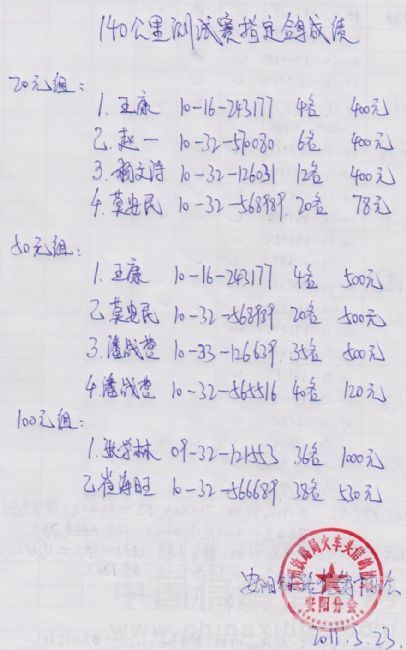 140公里测试赛指定鸽成绩
20元组:
1. 王康 10-16-243177 4名 400元
2. 赵一 10-32-570080 6名 400元
3. 杨文诗 10-32-126031 12名 400元
4. 莫安民 10-32-568989 20名 78元
50元组:
1. 王康 10-16-243177 4名 500元
2. 莫安民 10-32-568989 20名 500元
3. 潘战营 10-33-126639 35名 500元
4. 潘战营 10-32-565516 40名 120元
100元组:
1. 张学林 09-32-121553 36名 1000元
2. 崔海旺 10-32-566689 38名 530元
州铁路局火车头信鸽
安阳分会
2011.3.23